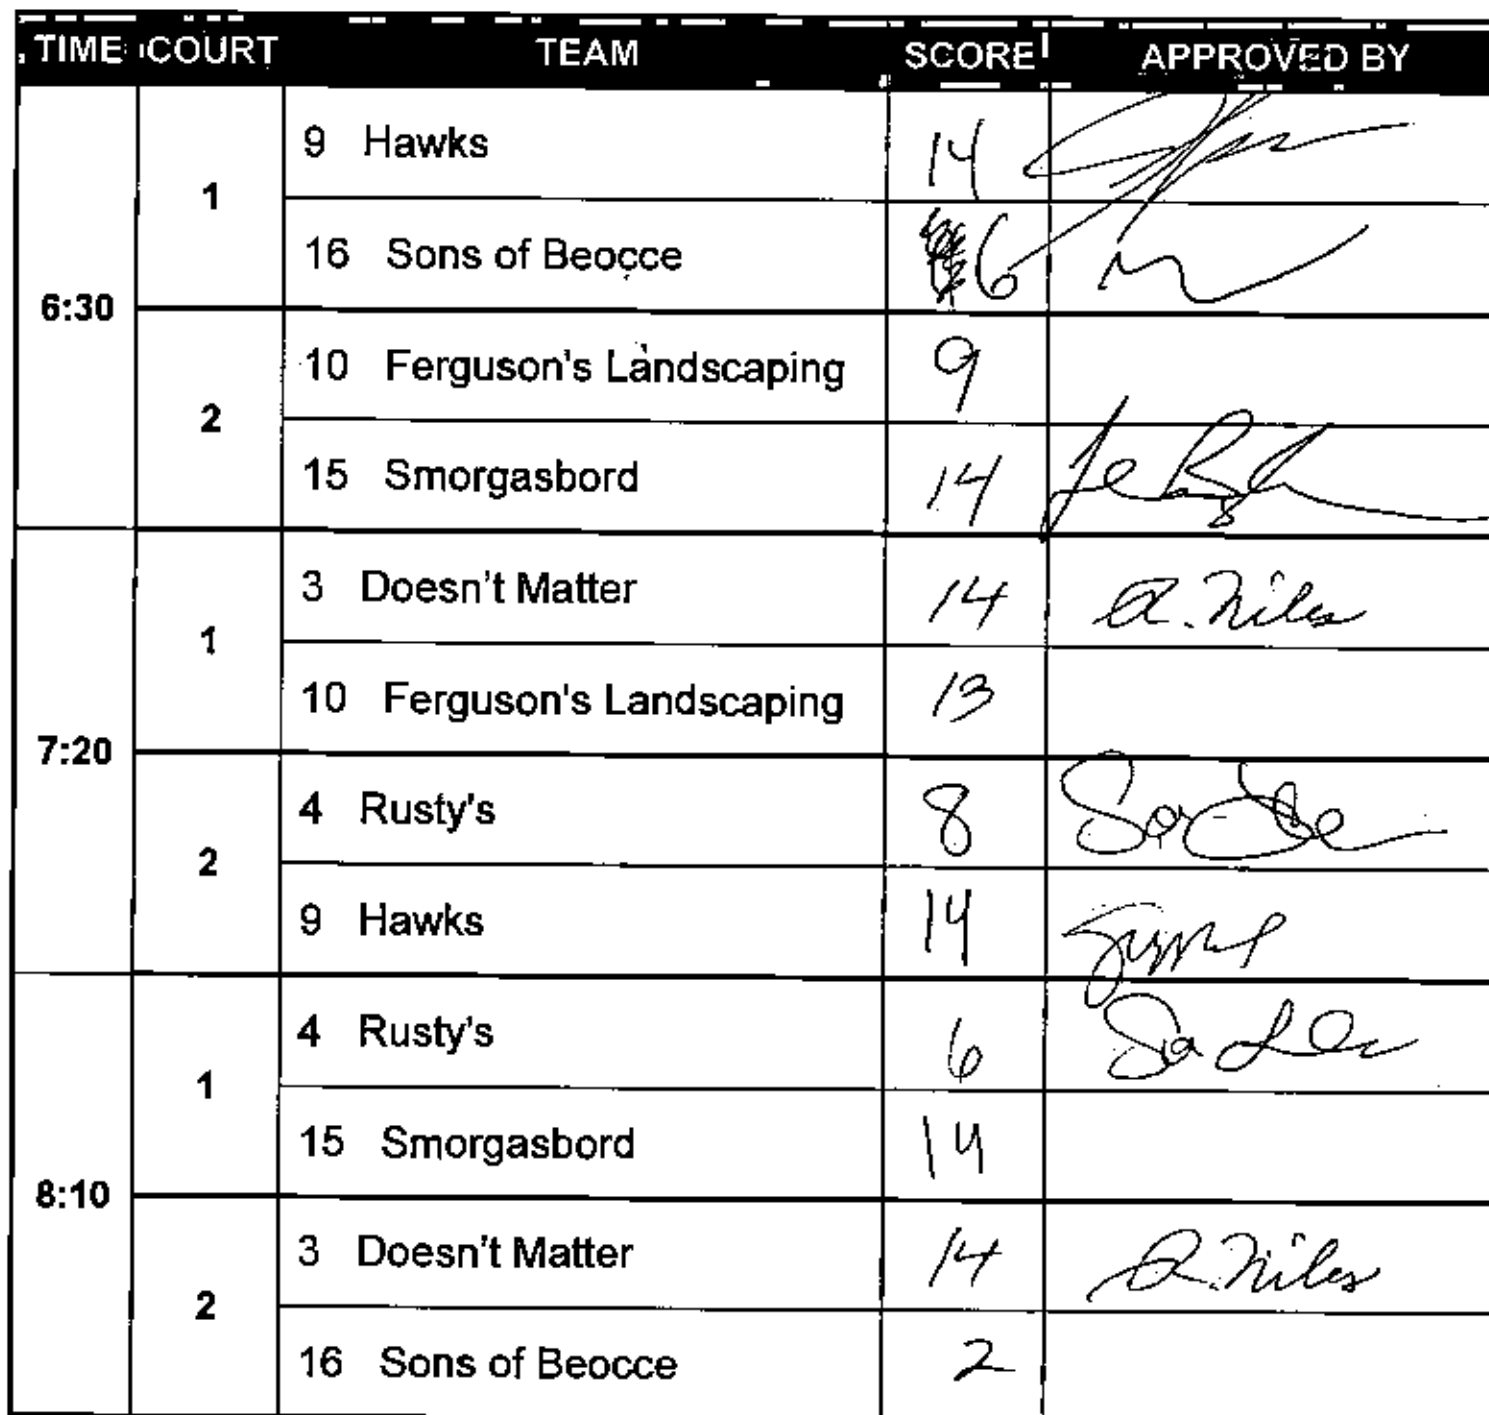 TIME COURT TEAM SCORE APPROVED BY
6:30 1 9 Hawks 14
16 Sons of Beocce 6
2 10 Ferguson's Landscaping 9
15 Smorgasbord 14
7:20 1 3 Doesn't Matter 14 A. Niles
10 Ferguson's Landscaping 13
2 4 Rusty's 8
9 Hawks 14
8:10 1 4 Rusty's 6
15 Smorgasbord 14
2 3 Doesn't Matter 14 A. Niles
16 Sons of Beocce 2